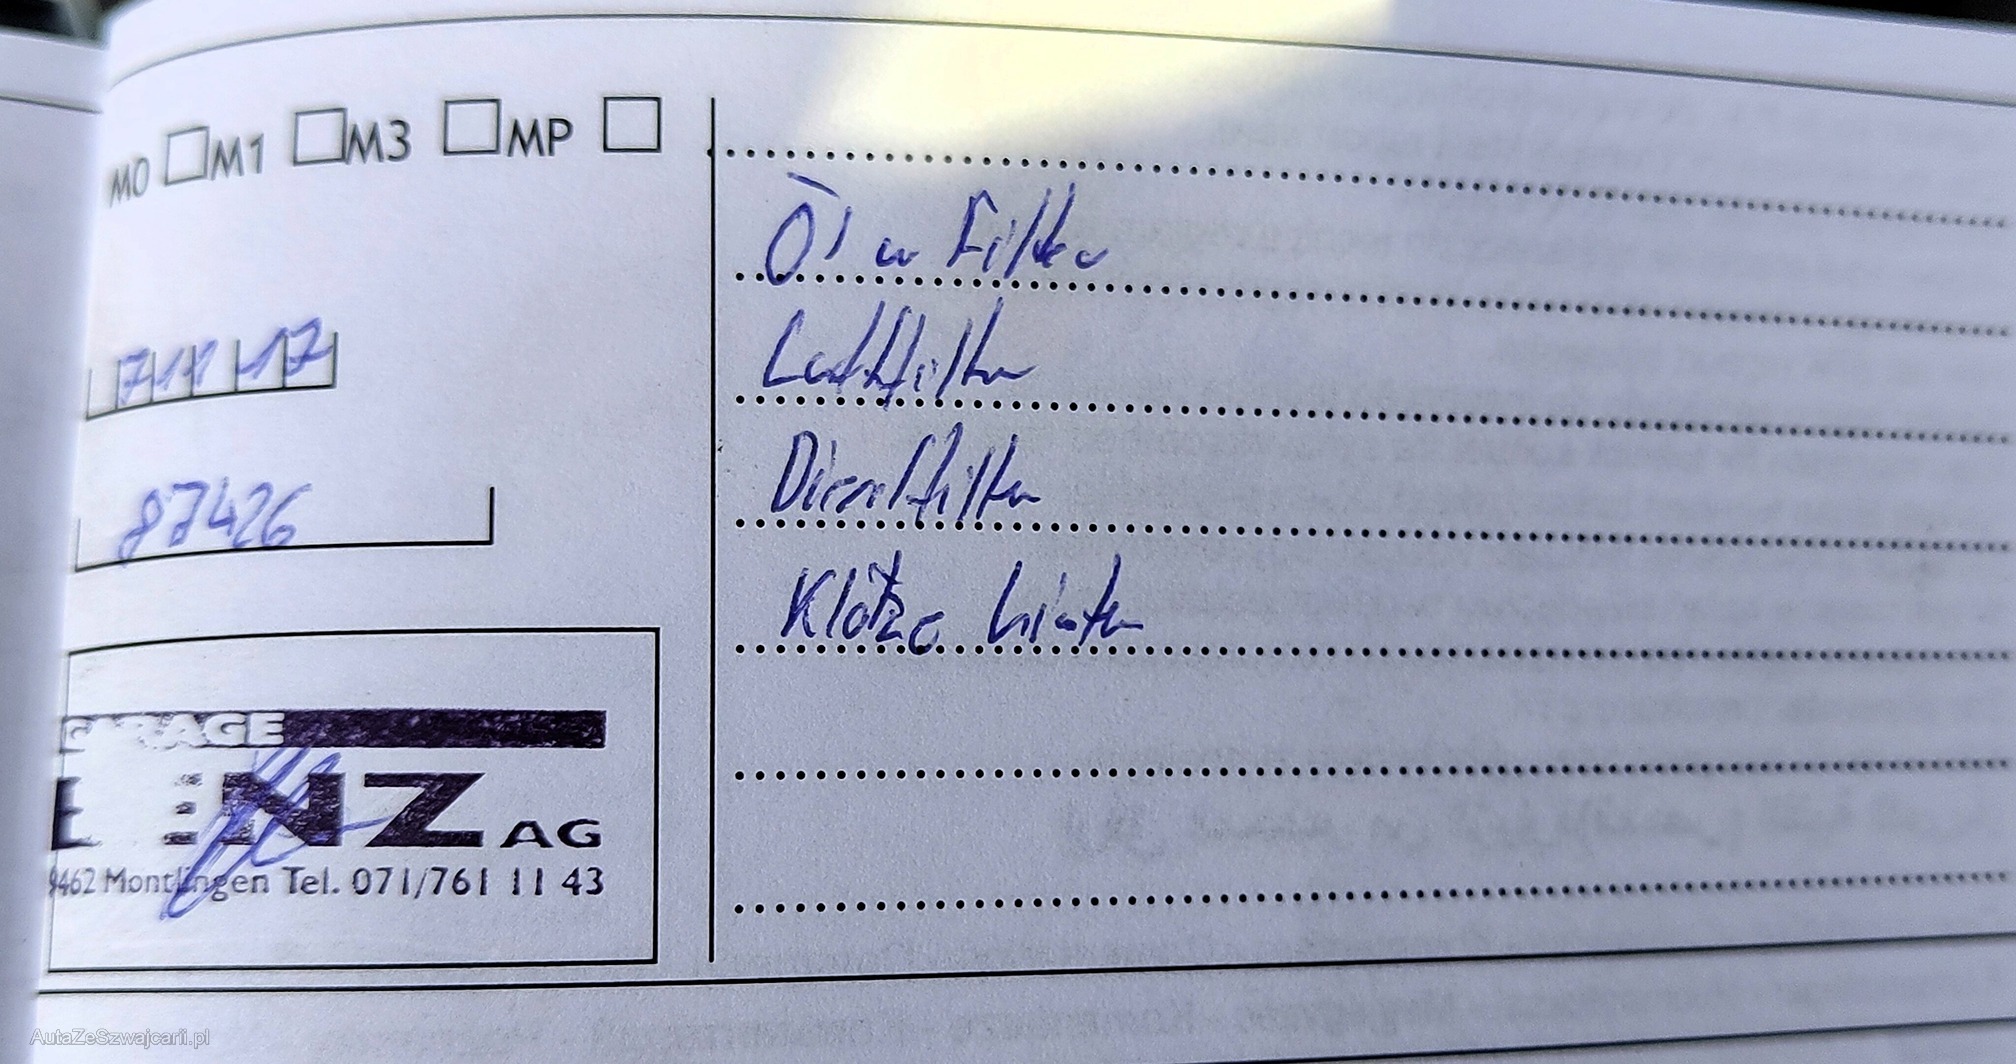 M0 M1 M3 MP
Öl u Filter
Luftfilter
7 11 17
Dieselfilter
87426
Klötze hinten
GARAGE
LENZ AG
9462 Montlingen Tel. 071/761 11 43
AutaZeSzwajcarii.pl